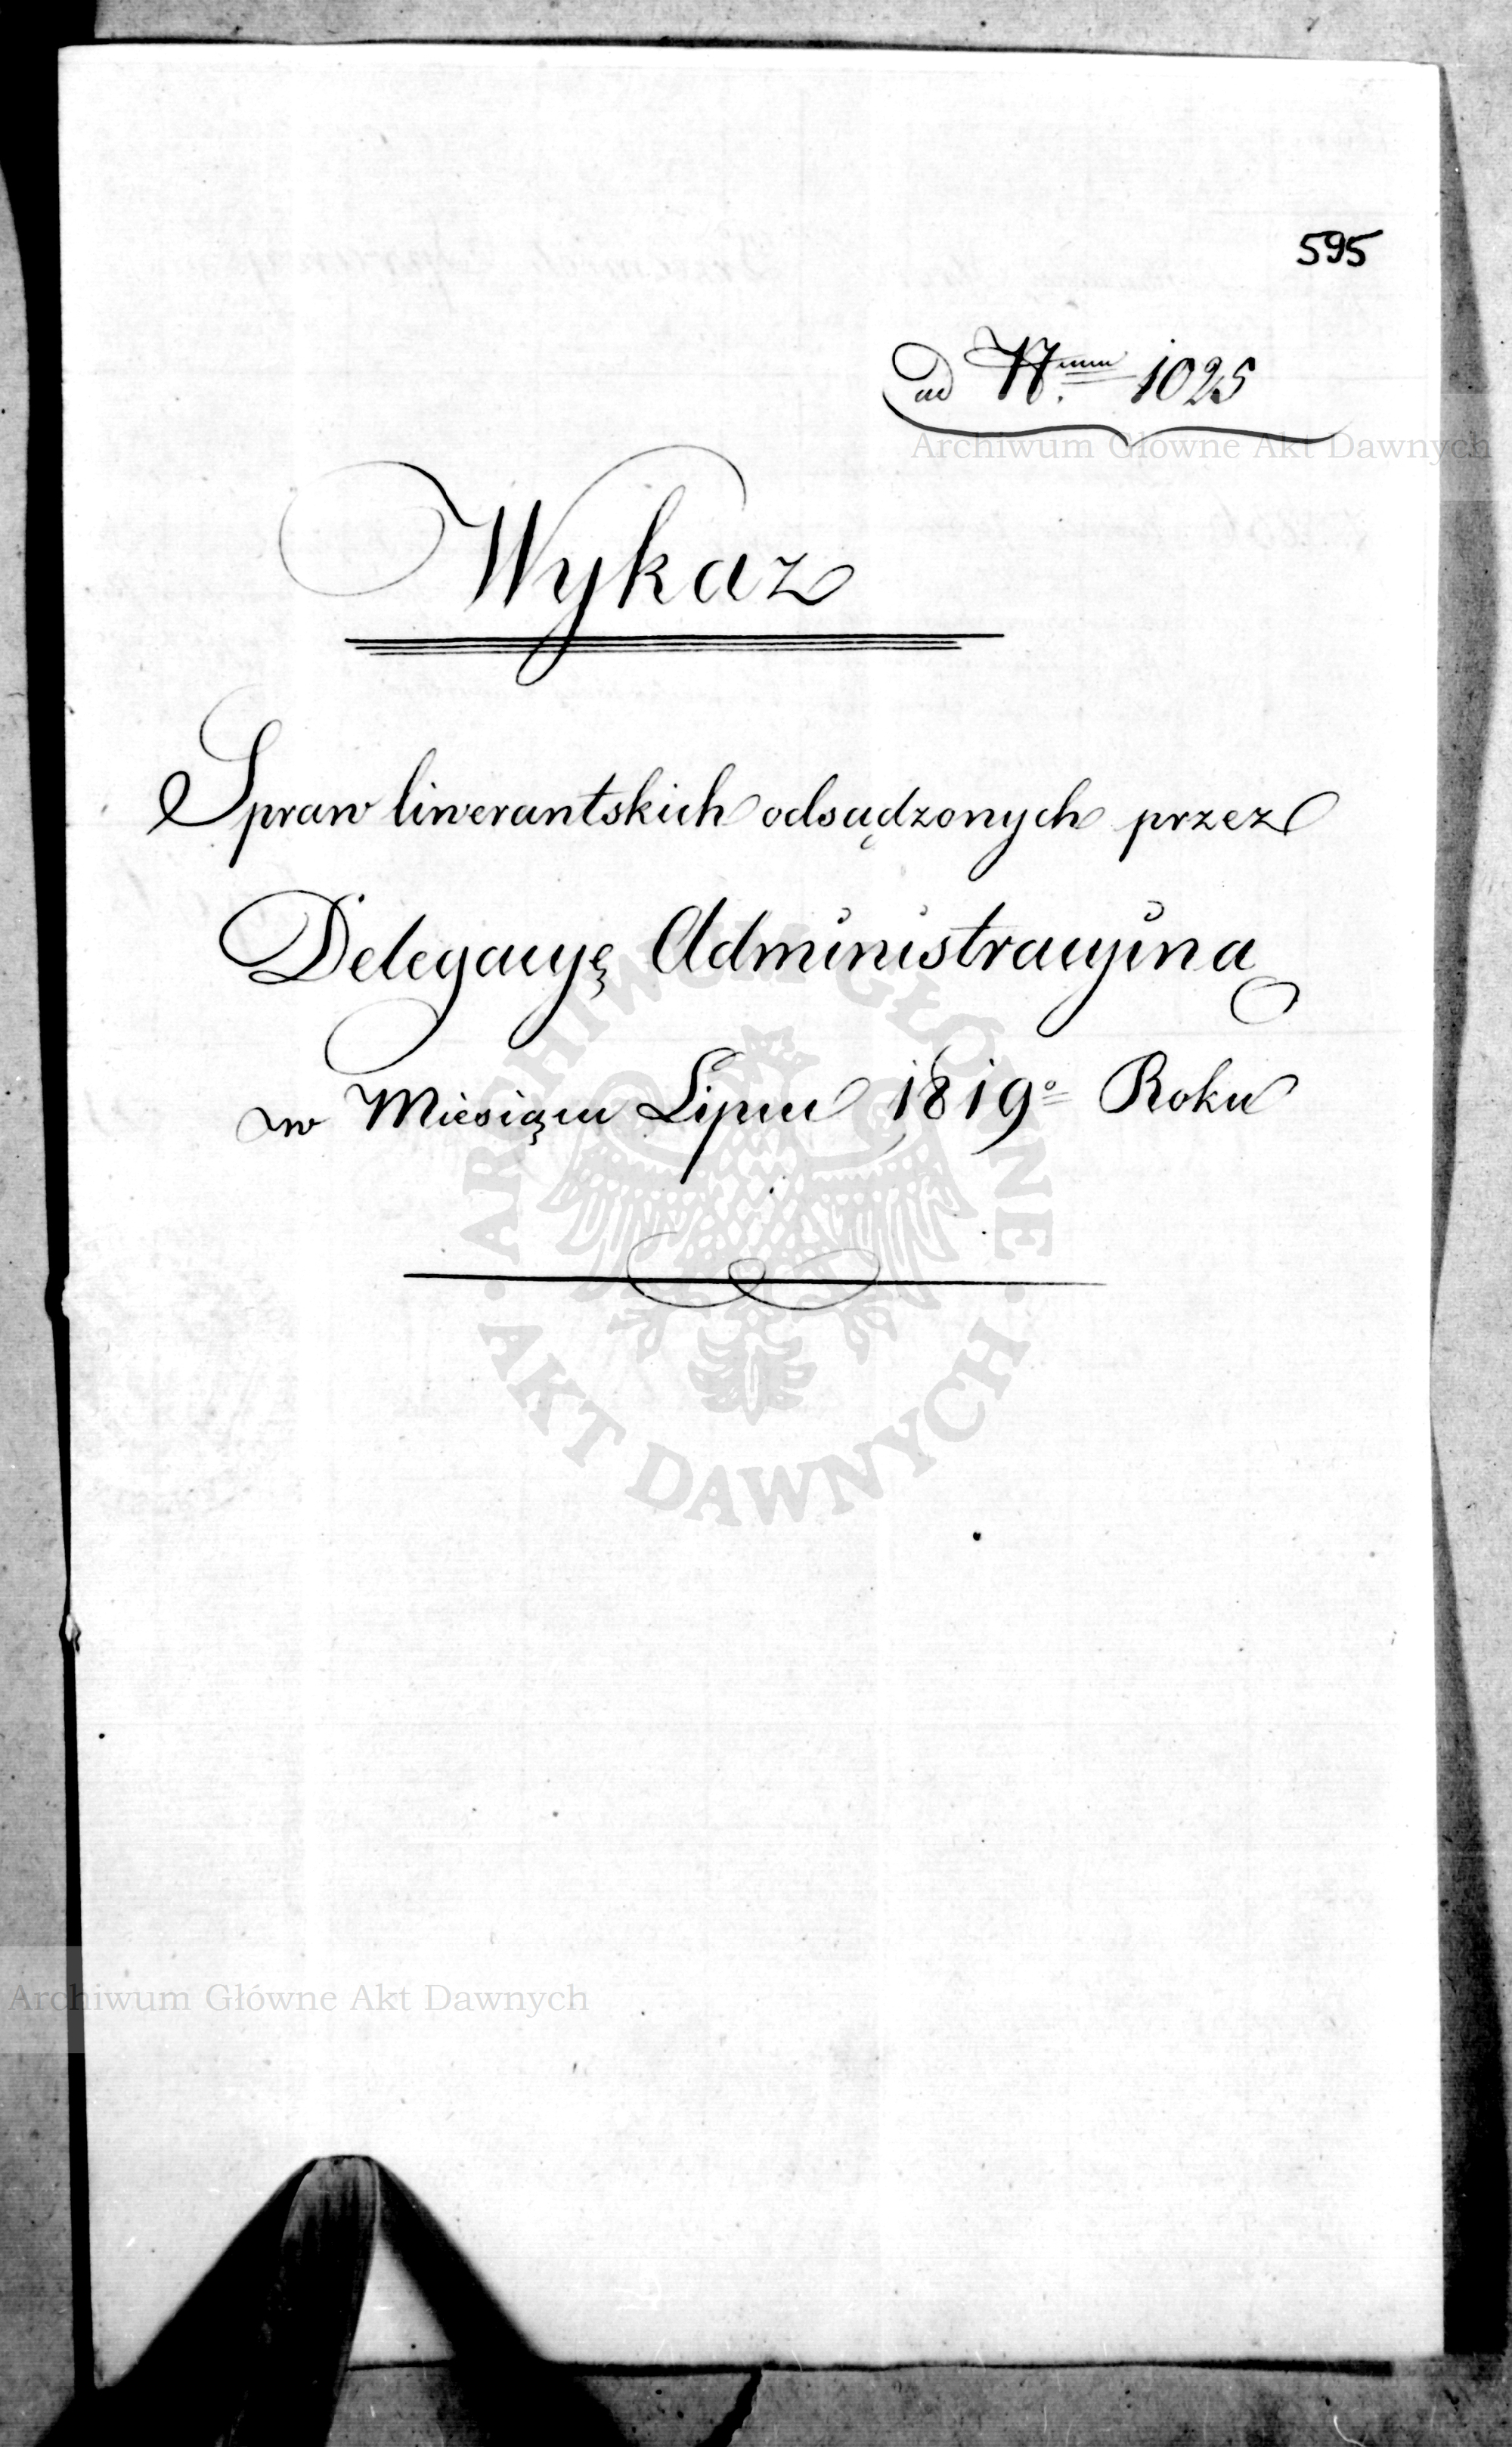 595
ad Nrum 1025
Archiwum Główne Akt Dawnych
Wykaz
Spraw liwerantskich odsądzonych przez
Delegacyę Administracyiną
w Miesiącu Lipcu 1819o Roku
ARCHIWUM GŁÓWNE
AKT DAWNYCH
Archiwum Główne Akt Dawnych